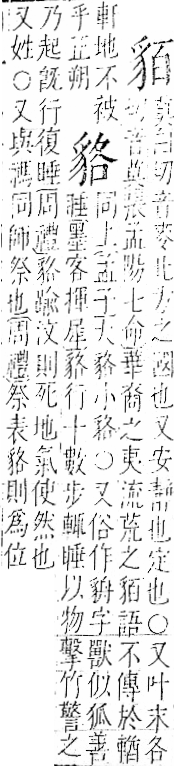 貊
莫白切音麥北方之國也又安靜也定也○又叶末各
切音莫張孟陽七命華裔之夷流荒之貊語不傳於輶
軒地不被
乎正朔
貉
同上孟子大貉小貉○又俗作貈字獸似狐善
睡墨客揮犀貉行十數步輒睡以物擊竹警之
乃起旣行復睡周禮貉踰汶則死地氣使然也
又姓○又與禡同師祭也周禮祭表貉則爲位